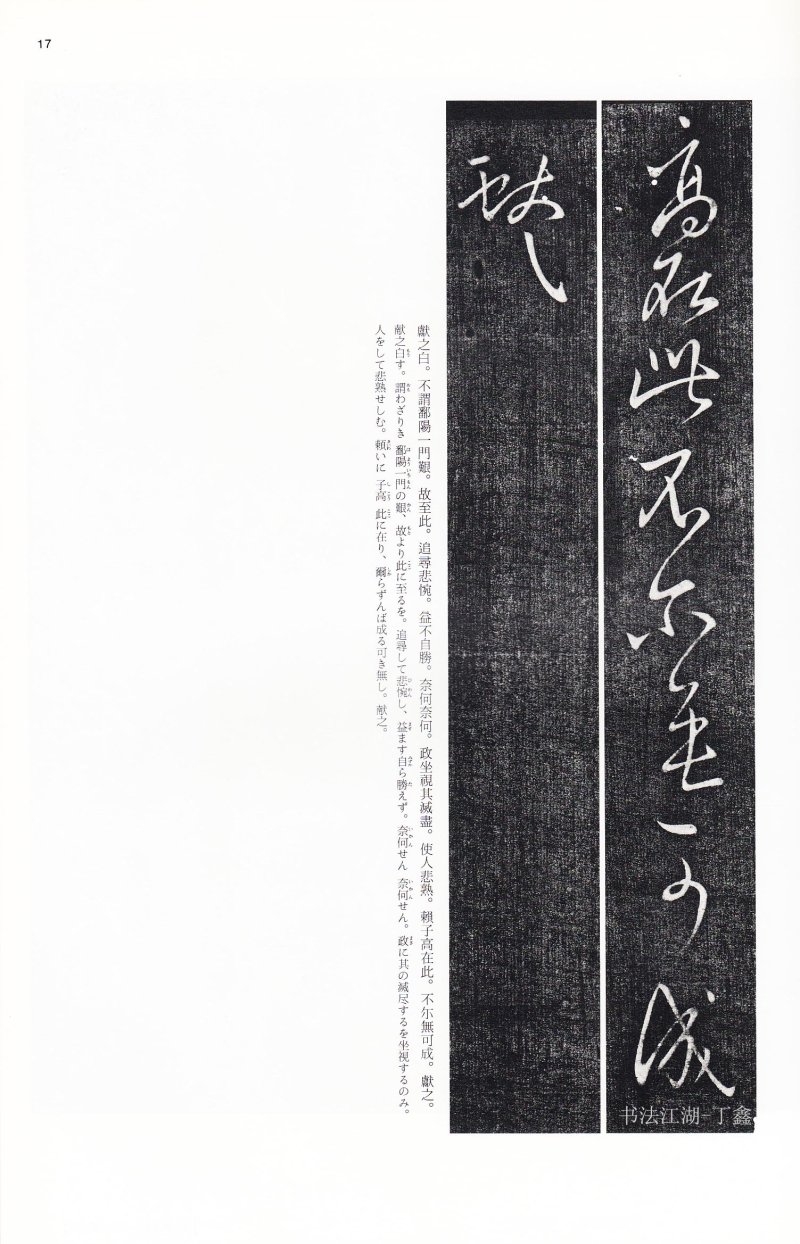 17
高在此不尓無可成
獻之
獻之白。不謂鄱陽一門艱。故至此。追尋悲惋。益不自勝。奈何奈何。政坐視其滅盡。使人悲熟。賴子高在此。不尓無可成。獻之。
献之白す。謂わざりき 鄱陽一門の艱、故より此に至るを。追尋して悲惋し、益ます自ら勝えず。奈何せん 奈何せん。政に其の滅尽するを坐視するのみ。
人をして悲熟せしむ。頼いに 子高 此に在り、爾らずんば成る可き無し。献之。
书法江湖-丁鑫